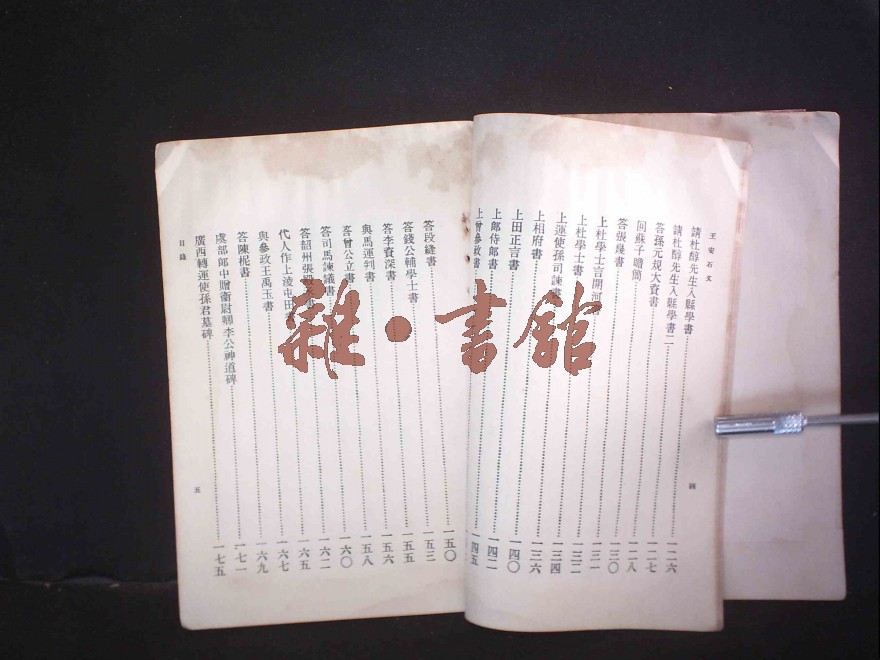 王安石文
請杜醇先生入縣學書
請杜醇先生入縣學書二
答孫元規大資書
回蘇子瞻簡
答張幾書
上杜學士言開河
上杜學士書
上運使孫司諫書
上相府書
上田正言書
上郎侍郎書
上曾參政書
一二六
一二七
一二八
一三〇
一三一
一三二
一三四
一三六
一四〇
一四二
一四五
四
答段縫書 一五〇
答錢公輔學士書 一五三
答李資深書 一五五
與馬運判書 一五六
答曾公立書 一五八
答司馬諫議書 一六〇
答韶州張殿 一六二
代人作上凌屯田書 一六五
與參政王禹玉書 一六七
答陳柅書 一六九
虞部郎中贈衛尉卿李公神道碑 一七一
廣西轉運使孫君墓碑 一七五
目錄
五
雜·書館